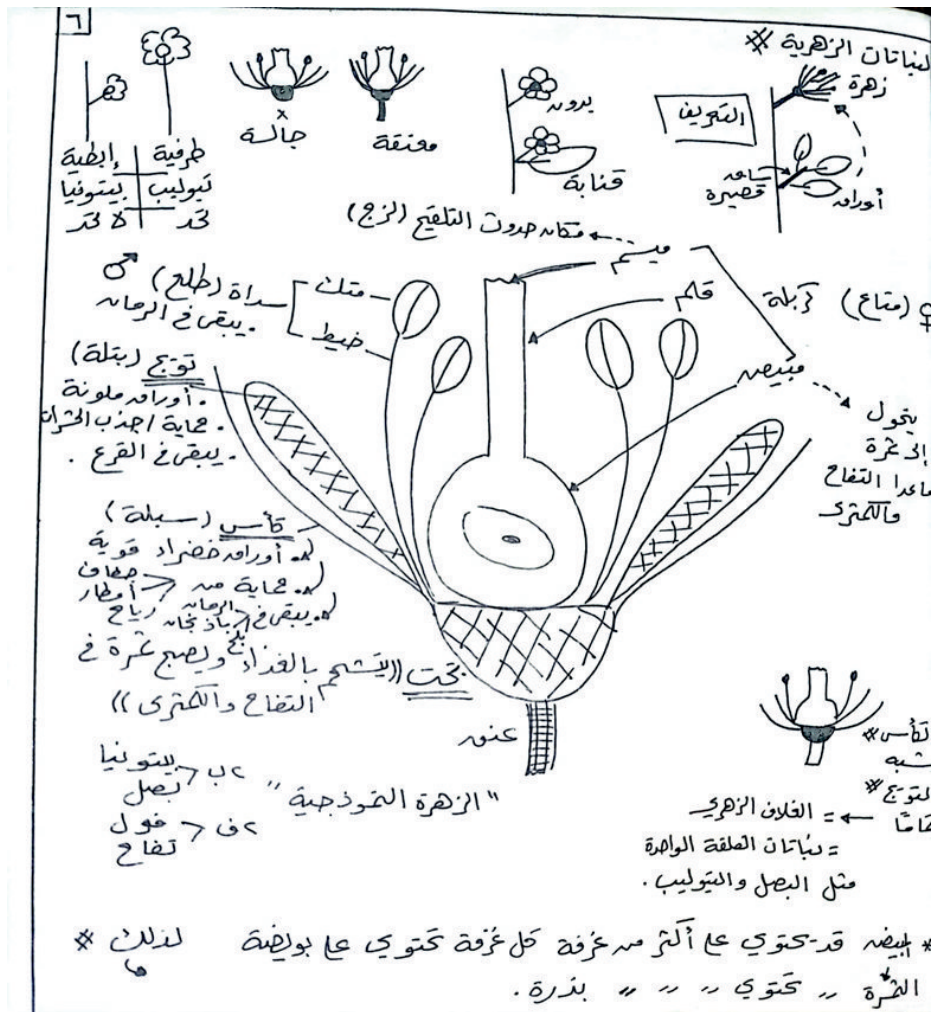 ٦
النباتات الزهرية #
زهرة
التعريف
ساق قصيرة
أوراق
بدون
قنابة
معنقة
جالسة
طرفية
إبطية
تيوليب
بيتونيا
تحد
لا تحد
مكان حدوث التلقيح (لزج)
ميسم
♀ (متاع) كربلة
قلم
مبيض
يتحول
إلى ثمرة
ماعدا التفاح
والكمثرى
♂
متك
خيط
سداة (طلع)
. يبقى في الرمان
تويج (بتلة)
. أوراق ملونة
. حماية / جذب الحشرات
. يبقى في القرع .
كأس (سبلة)
. أوراق خضراء قوية
. حماية من
جفاف
أمطار
رياح
. يبقى في
الرمان
باذنجان
بلح
تخت ((يتشحم بالغذاء ويصبح ثمرة في
التفاح والكمثرى))
عنق
"الزهرة النموذجية"
٢ب < بيتونيا
بصل
٢ف < فول
تفاح
كأس #
شبه
التويج #
تمامًا
= الغلاف الزهري
= نباتات الفلقة الواحدة
مثل البصل والتيوليب .
* المبيض قد يحتوي على أكثر من غرفة كل غرفة تحتوي على بويضة
لذلك #
الثمرة 〃 تحتوي 〃 〃 〃 بذرة .